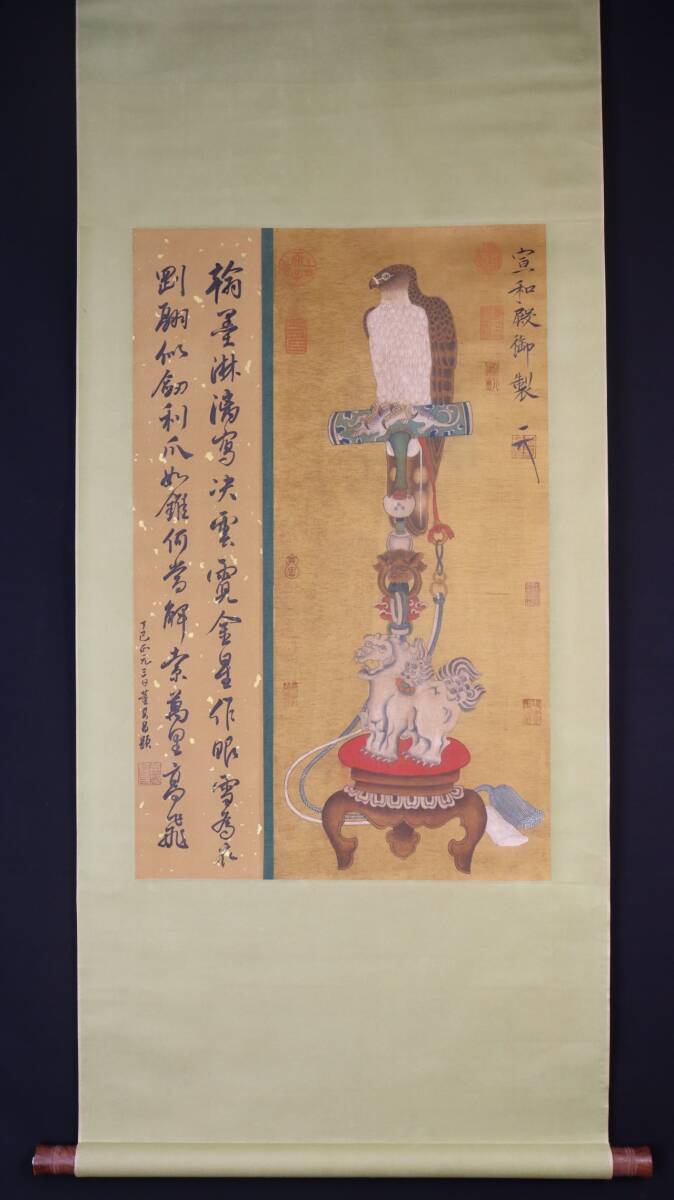 宣和殿御製
翰墨淋漓寫決雲霓金星作眼雪為衣
剛翮似劍利爪如錐何當解索萬里高飛
丁巳 三日董其昌題